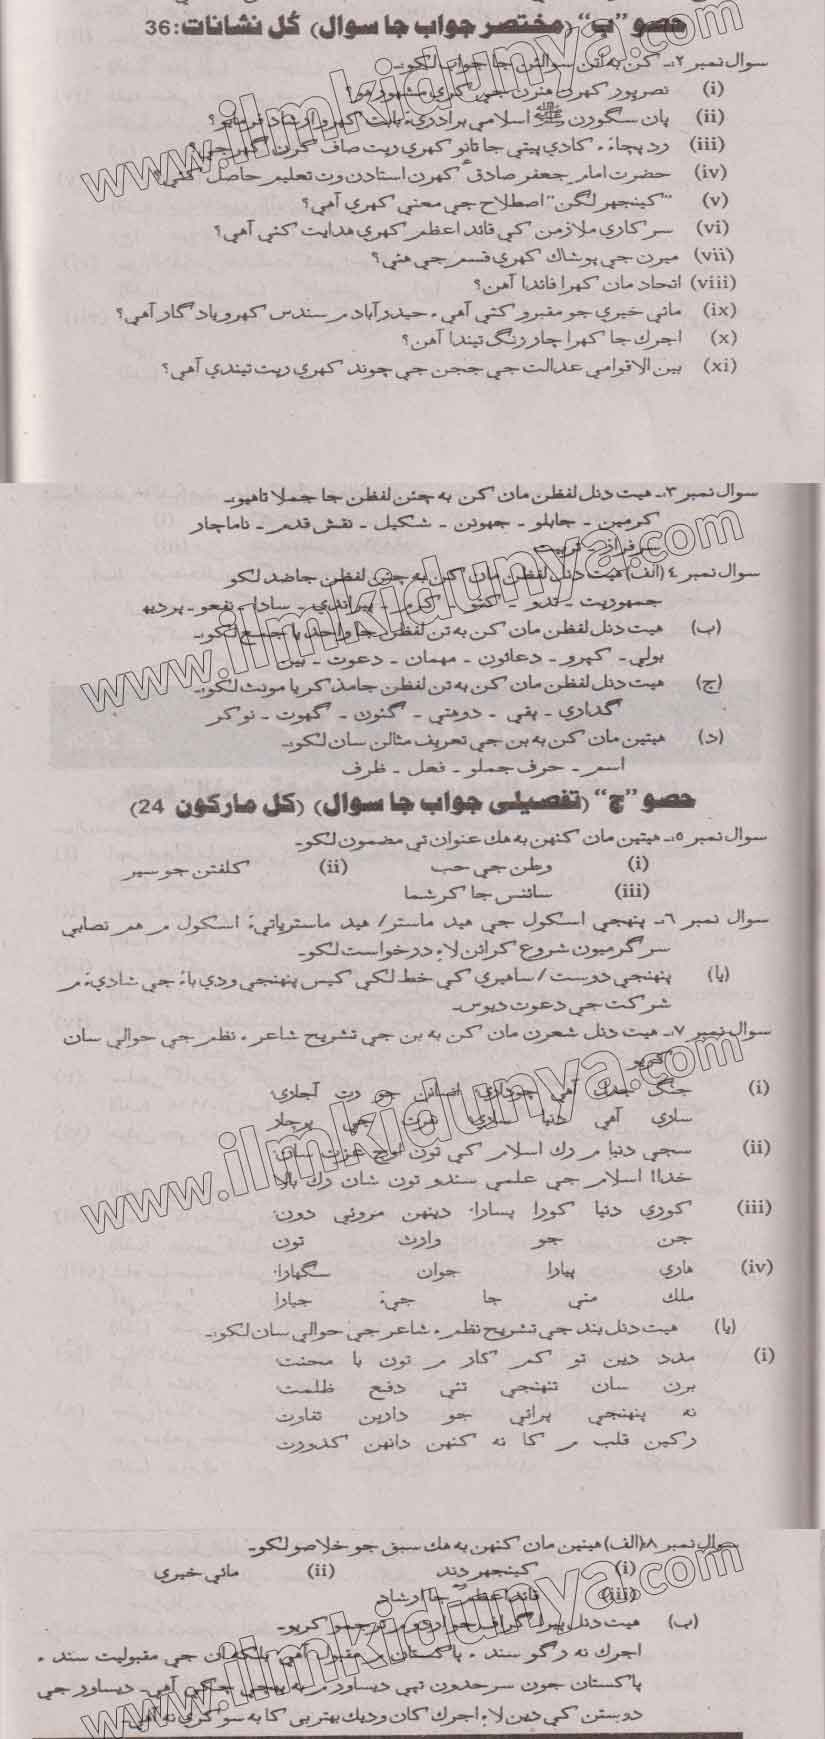 حصو ”ب“ (مختصر جواب جا سوال) ڪُل نشانات: 36
سوال نمبر ۲:۔ ڪن به اٺن سوالن جا جواب لکو:۔
(i) نصرپور ڪهڙن هنرن جي ڪري مشهور هو؟
(ii) پاڻ سڳورن ﷺ اسلامي برادريءَ بابت ڪهڙو ارشاد فرمايو؟
(iii) رڌ پچاءَ ۽ کاڌي پيتي جا ٿانو ڪهڙي ريت صاف ڪرڻ گهرجي؟
(iv) حضرت امام جعفر صادقؑ ڪهڙن استادن وٽ تعليم حاصل ڪئي؟
(v) ”ڪينجهر لڳڻ“ اصطلاح جي معنيٰ ڪهڙي آهي؟
(vi) سرڪاري ملازمن کي قائد اعظم ڪهڙي هدايت ڪئي آهي؟
(vii) ميرن جي پوشاڪ ڪهڙي قسم جي هئي؟
(viii) اتحاد مان ڪهڙا فائدا آهن؟
(ix) مائي خيري جو مقبرو ڪٿي آهي ۽ حيدرآباد ۾ سندس ڪهڙو يادگار آهي؟
(x) اجرڪ جا ڪهڙا چار رنگ ٿيندا آهن؟
(xi) بين الاقوامي عدالت جي ججن جي چونڊ ڪهڙي ريت ٿيندي آهي؟
سوال نمبر ۳:۔ هيٺ ڏنل لفظن مان ڪن به ڇهن لفظن جا جملا ٺاهيو:۔
ڪرمين ۔ جابلو ۔ جهونن ۔ شڪيل ۔ نقش قدم ۔ ناماچار
سرفراز ۔ تربيت
سوال نمبر ٤ (الف) هيٺ ڏنل لفظن مان ڪن به ڇهن لفظن جا ضد لکو
جمهوريت ۔ ٿڌو ۔ کٽو ۔ گرم ۔ پيراندي ۔ سادا ۔ نفعو ۔ پرڏيهه
(ب) هيٺ ڏنل لفظن مان ڪن به ٽن لفظن جا واحد يا جمع لکو:۔
ٻولي ۔ کيڙو ۔ دعائون ۔ مهمان ۔ دعوت ۔ ٻين
(ج) هيٺ ڏنل لفظن مان ڪن به ٽن لفظن جا مذڪر يا مونث لکو:۔
گداري ۔ ٻڍي ۔ ڏوهٽي ۔ ڳئون ۔ گهوٽ ۔ نوڪر
(د) هيٺين مان ڪن به ٻن جي تعريف مثالن سان لکو:۔
اسم ۔ حرف جملو ۔ فعل ۔ ظرف
حصو ”ج“ (تفصيلي جواب جا سوال) (ڪل مارڪون 24)
سوال نمبر ۵:۔ هيٺين مان ڪنهن به هڪ عنوان تي مضمون لکو۔
(i) وطن جي حب (ii) ڪلفٽن جو سير
(iii) سائنس جا ڪرشما
سوال نمبر ٦:۔ پنهنجي اسڪول جي هيڊ ماستر/ هيڊ ماسترياڻيءَ اسڪول ۾ هم نصابي
سرگرميون شروع ڪرائڻ لاءِ درخواست لکو۔
(يا) پنهنجي دوست/ ساهيڙي کي خط لکي کيس پنهنجي وڏي ڀاءُ جي شاديءَ ۾
شرڪت جي دعوت ڏيوس۔
سوال نمبر ۷:۔ هيٺ ڏنل شعرن مان ڪن به ٻن جي تشريح شاعر ۽ نظم جي حوالي سان
ڪريو
(i) جنگ جدل آهي چوڌاري انسانن جو رت آجاري
ساڙي آهي دنيا ساري نفرت جي پرچار
(ii) سڄي دنيا ۾ رک اسلام کي تون لوح عزت سان
خدا! اسلام جي علمي سندو تون شان رک بالا
(iii) ڪوڙي دنيا ڪوڙا پسارا، ڏينهن مڙوئي دون،
جن جو وارث تون
(iv) هاري پيارا جوان سگهارا
ملڪ مٺي جا جيءَ جيارا
(يا) هيٺ ڏنل بند جي تشريح نظم ۽ شاعر جي حوالي سان لکو:۔
(i) مدد ڏين ٿو ڪم ڪار ۾ تون با محنت
برن سان تنهنجي ٿئي دفع ظلمت
نه پنهنجي پرائي جو ڌارين تفاوت
رکين قلب ۾ ڪا نه ڪنهن ڏانهن ڪدورت
سوال نمبر ۸ (الف) هيٺين مان ڪنهن به هڪ سبق جو خلاصو لکو۔
(i) ڪينجهر ڍنڍ (ii) مائي خيري
(iii) قائداعظمؒ جا ارشاد
(ب) هيٺ ڏنل پيراگراف جو اردو ۾ ترجمو ڪريو۔
اجرڪ نه رڳو سنڌ ۽ پاڪستان ۾ مقبول آهي بلڪه ان جي مقبوليت سنڌ ۽
پاڪستان جون سرحدون ٽپي ڏيساور ۾ به پهچي چڪي آهي۔ ڏيساور جي
دوستن کي ڏيڻ لاءِ اجرڪ کان وڌيڪ بهتر ٻي ڪا به سوکڙي نه آهي۔
www.ilmkidunya.com
www.ilmkidunya.com
www.ilmkidunya.com
www.ilmkidunya.com